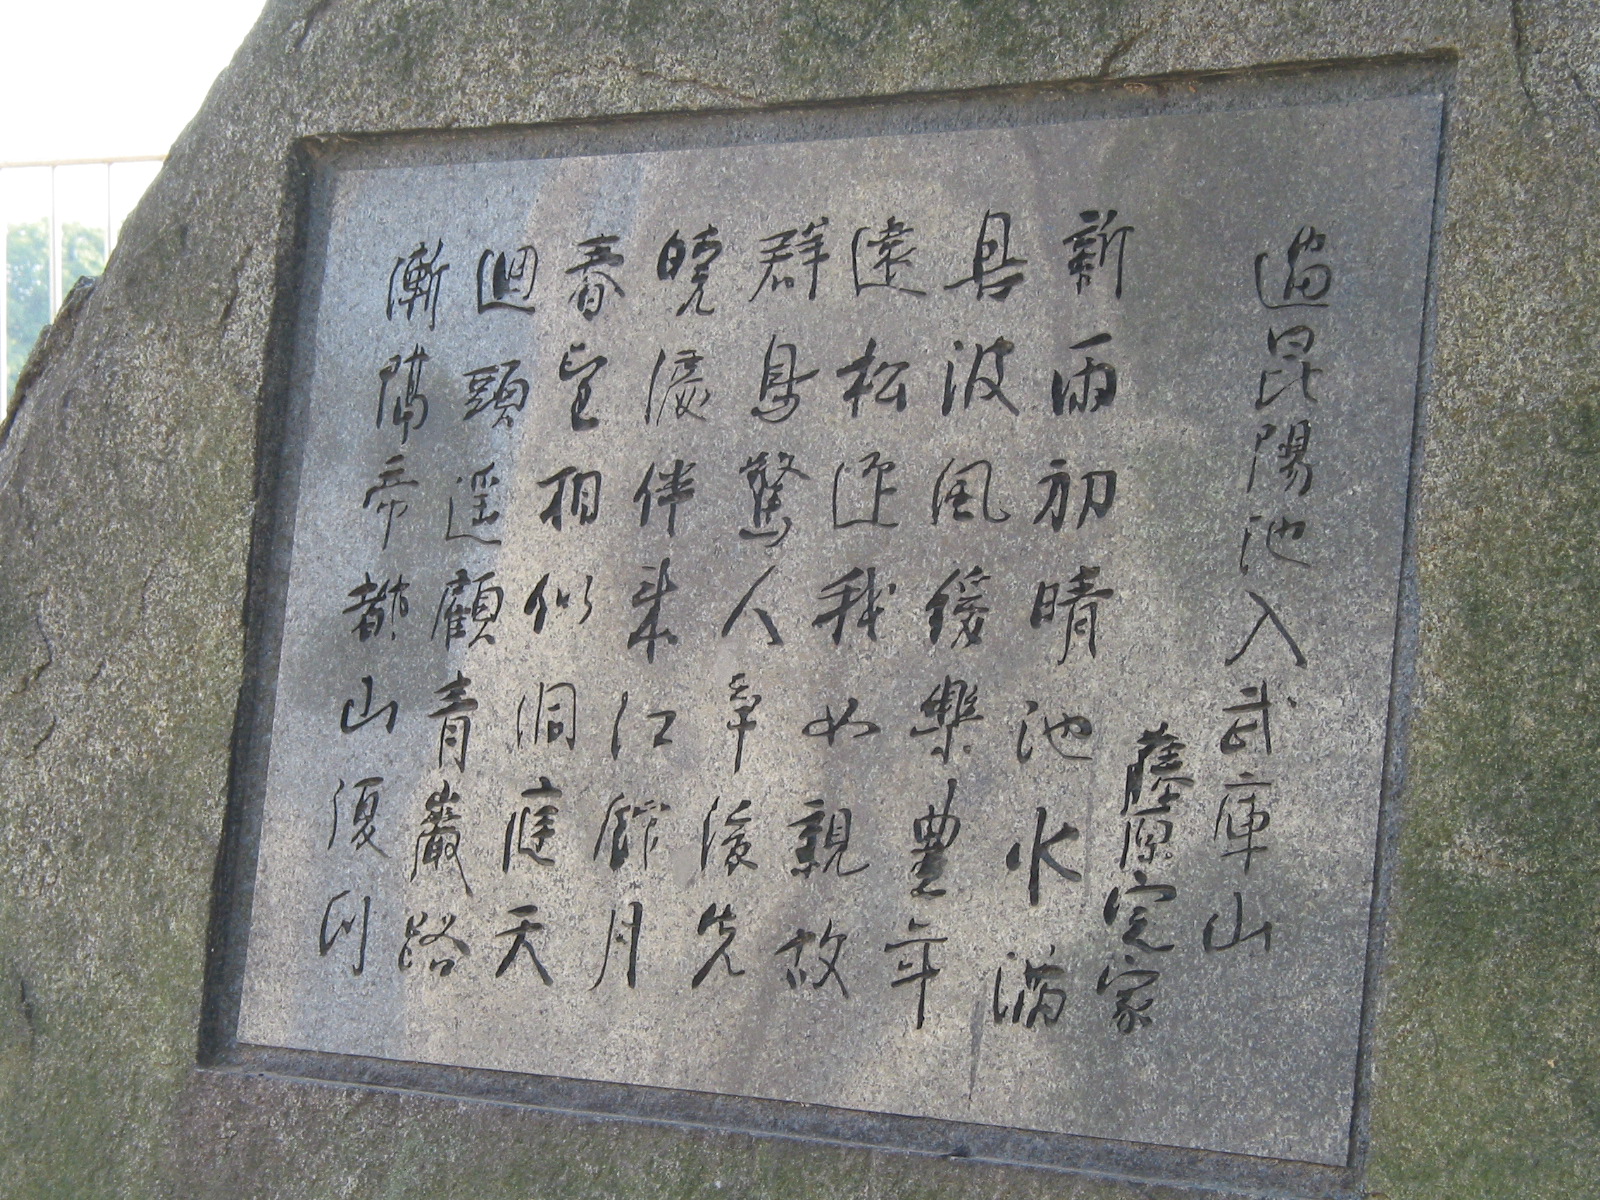 過昆陽池入武庫山
藤原定家
新雨初晴池水満
恩波風緩樂豊年
遠松迎我如親故
群鳥驚人争後先
暁伴来江館月
春望相似洞庭天
廻頭遥顧青巌路
漸隔帝都山復川